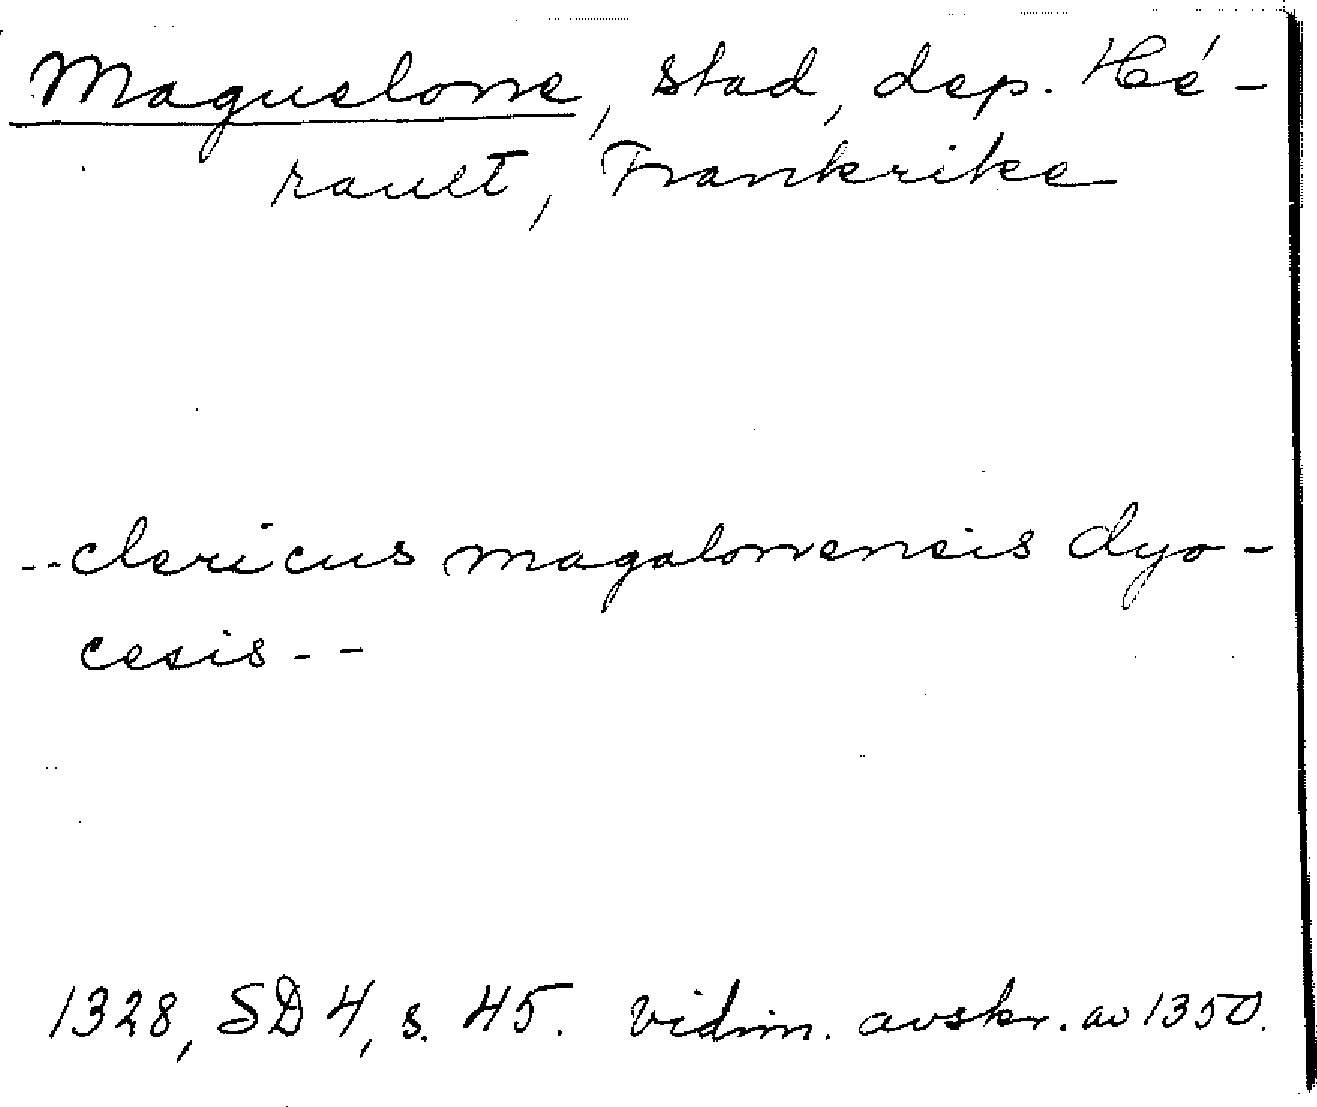 Maguelone, stad, dep. Hé-
rault, Frankrike
--clericus magalonensis dyo-
cesis--
1328, SD 4, s. 45. vidim. avskr. av 1350.